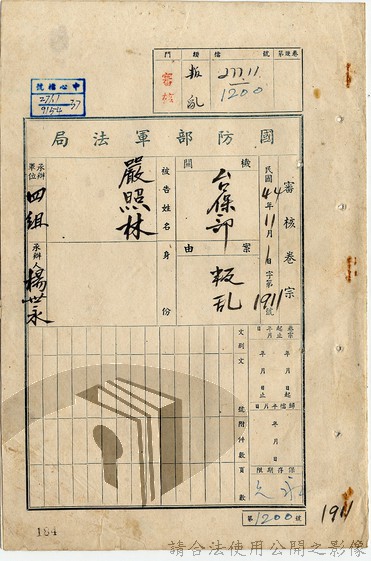 門 類 檔 號 卷連號
審核 叛乱 277.11
1200
中心檔號
277.11
9154 37
國防部軍法局
審核卷宗
民國44年11月1日 字第1911號
機關 台保部
案由 叛乱
被告姓名 嚴照林
身份
承辦單位 四組
承辦人 楊世永
卷宗起止年月日
年 月 日起
年 月 日止
歸檔年月日
年 月 日
保存期限
永久
文別
文號
附件數
頁數
第1200號
1911
184
請合法使用公開之影像